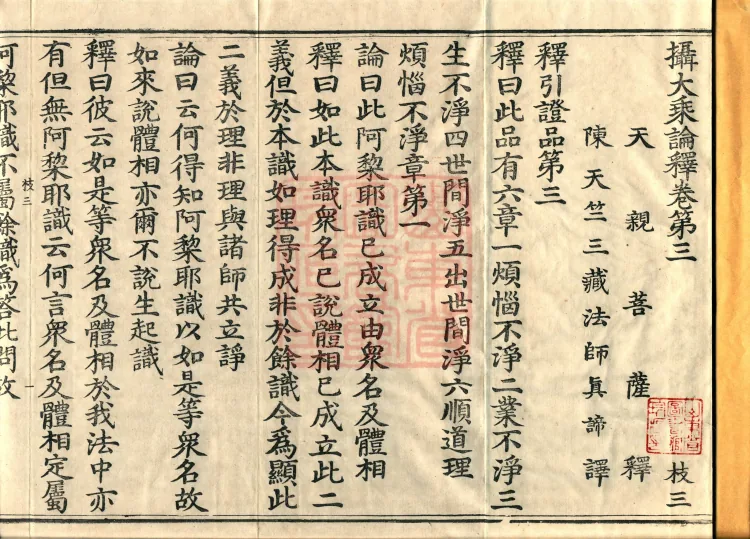 攝大乘論釋卷第三 枝三
天親菩薩釋
陳天竺三藏法師真諦譯
釋引證品第三
釋曰此品有六章一煩惱不淨二業不淨三
生不淨四世間淨五出世間淨六順道理
煩惱不淨章第一
論曰此阿黎耶識已成立由衆名及體相
釋曰如此本識衆名已說體相已成立此二
義但於本識如理得成非於餘識今爲顯此
二義於理非理與諸師共立諍
論曰云何得知阿黎耶識以如是等衆名故
如來說體相亦爾不說生起識
釋曰彼云如是等衆名及體相於我法中亦
有但無阿黎耶識云何言衆名及體相定屬
枝三 一
阿黎耶識不屬餘識爲答此問故